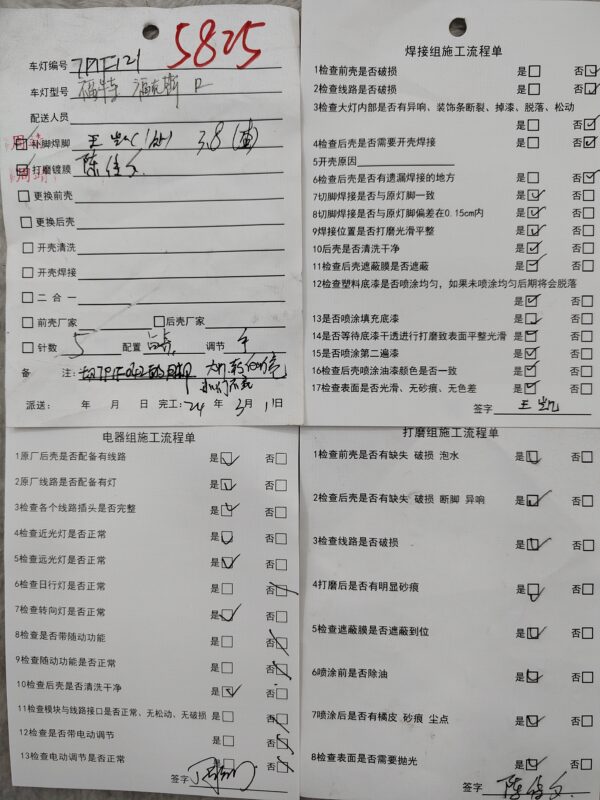 5825
车灯编号
车灯型号 福特 福克斯
配送人员
补脚焊脚 王凯 3.8
打磨镀膜 陈俊文
更换前壳
更换后壳
开壳清洗
开壳焊接
二合一
前壳厂家 后壳厂家
针数 5 配置 调节 手
备 注:
派送: 年 月 日 完工: 24 年 3 月 1 日
焊接组施工流程单
1检查前壳是否破损 是 否
2检查线路是否破损 是 否
3检查大灯内部是否有异响、装饰条断裂、掉漆、脱落、松动
是 否
4检查后壳是否需要开壳焊接 是 否
5开壳原因
6检查后壳是否有遗漏焊接的地方 是 否
7切脚焊接是否与原灯脚一致 是 否
8切脚焊接是否与原灯脚偏差在0.15cm内 是 否
9焊接位置是否打磨光滑平整 是 否
10后壳是否清洗干净 是 否
11检查后壳遮蔽膜是否遮蔽 是 否
12检查塑料底漆是否喷涂均匀，如果未喷涂均匀后期将会脱落
是 否
13是否喷涂填充底漆 是 否
14是否等待底漆干透进行打磨致表面平整光滑 是 否
15是否喷涂第二遍漆 是 否
16检查后壳喷涂油漆颜色是否一致 是 否
17检查表面是否光滑、无砂痕、无色差 是 否
签字 王凯
电器组施工流程单
1原厂后壳是否配备有线路 是 否
2原厂线路是否配备有灯 是 否
3检查各个线路插头是否完整 是 否
4检查近光灯是否正常 是 否
5检查远光灯是否正常 是 否
6检查日行灯是否正常 是 否
7检查转向灯是否正常 是 否
8检查是否带随动功能 是 否
9检查随动功能是否正常 是 否
10检查后壳是否清洗干净 是 否
11检查模块与线路接口是否正常、无松动、无破损 是 否
12检查是否带电动调节 是 否
13检查电动调节是否正常 是 否
签字
打磨组施工流程单
1检查前壳是否有缺失 破损 泡水 是 否
2检查后壳是否有缺失 破损 断脚 异响 是 否
3检查线路是否破损 是 否
4打磨后是否有明显砂痕 是 否
5检查遮蔽膜是否遮蔽到位 是 否
6喷涂前是否除油 是 否
7喷涂后是否有橘皮 砂痕 尘点 是 否
8检查表面是否需要抛光 是 否
签字 陈俊文